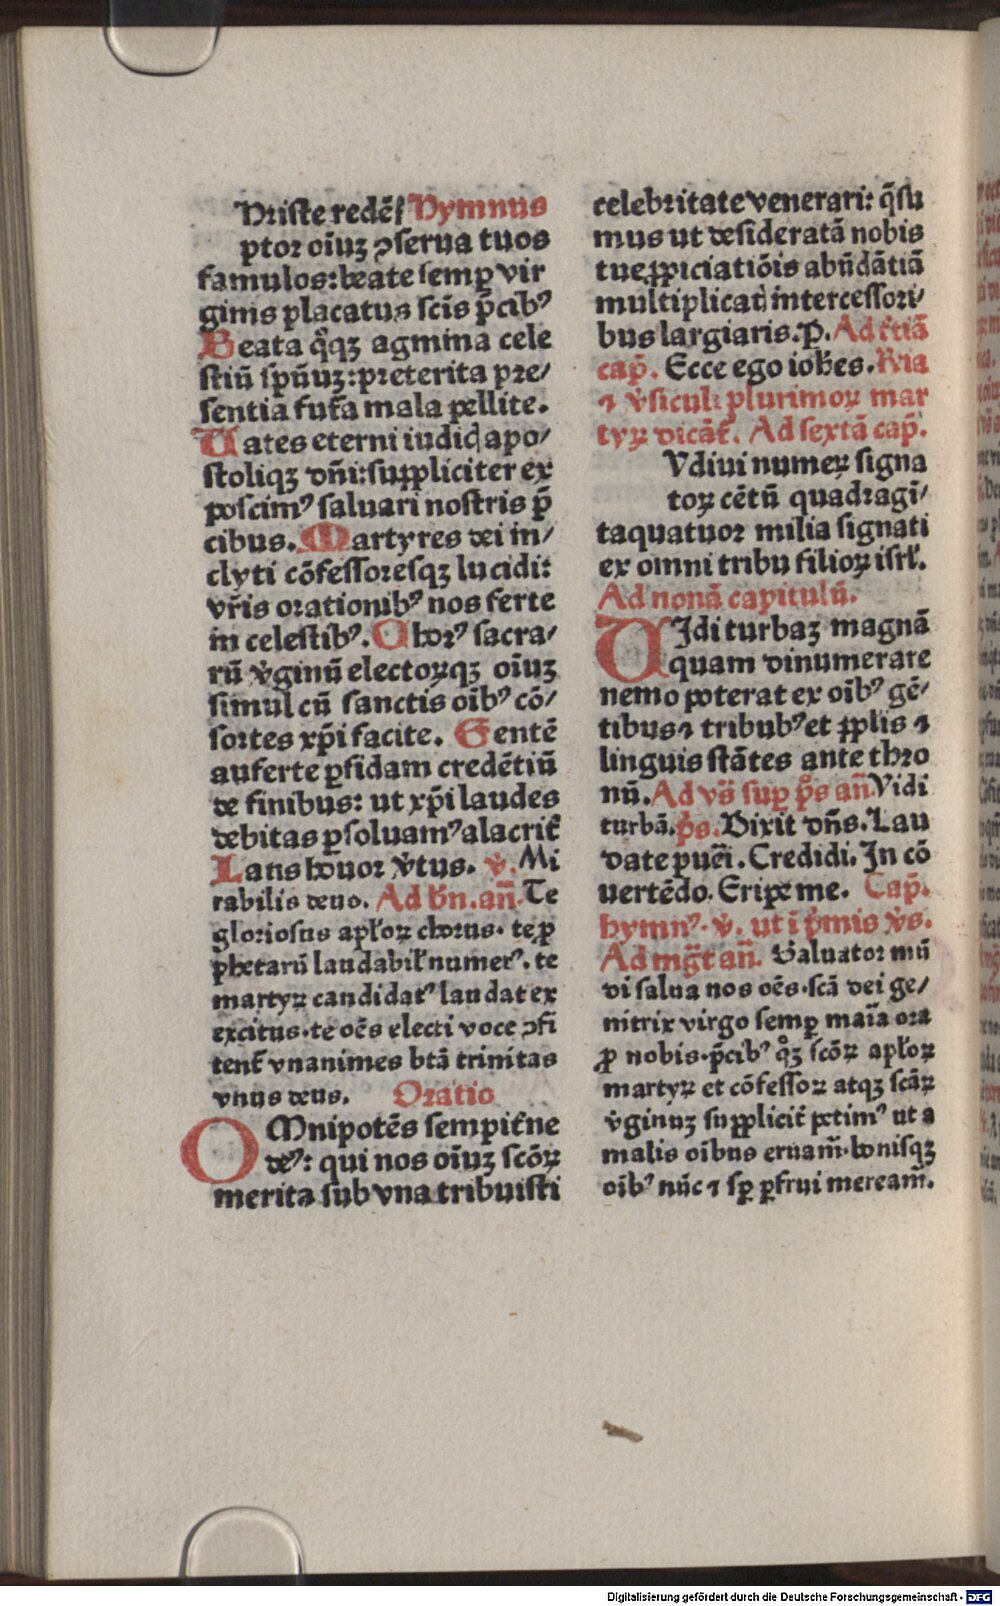 Hriste redēſ Hymnus
ptoꝛ oīuꝫ ↄſerua tuos
famulos: beate ſemꝑ vir
ginis placatus ſcīs p̄cibꝰ
Beata qͦqꝫ agmina cele
ſtiū ſpūuꝫ: pꝛeterita pꝛe/
ſentia fuťa mala pellite.
Uates eterni iudicꝭ apo/
ſtoliqꝫ dn̄i: ſuppliciter ex
poſcimꝰ ſaluari noſtris p̄
cibus. Martyres dei in/
clyti cōfeſſoꝛeſqꝫ lucidi:
vr̄is oꝛationibꝰ nos ferte
in celeſtibꝰ. Choꝛꝰ ſacra/
rū v̓ginū electoꝝqꝫ oīuꝫ
ſimul cū ſanctis oībꝰ cō/
ſoꝛtes xp̄i facite. Gentē
auferte ꝑfidam credētiū
de finibus: ut xp̄i laudes
debitas ꝑſoluamꝰ alacrit̓
Laus honoꝛ v̓tus. v̓. Mi
rabilis deus. Ad bn̄. an̄. Te
glorioſus apl̓oꝝ choꝛus. te ꝓ
phetarū laudabil̓ numerꝰ. te
martyꝝ candidatꝰ laudat ex
excitus. te oēs electi voce ↄfi
tent̓ vnanimes btā trinitas
vnus deus. Oratio
OMnipotēs ſempit̓ne
deꝰ: qui nos oīuꝫ ſcōꝝ
merita ſub vna tribuiſti
celebꝛitate venerari: q̄ſu
mus ut deſideratā nobis
tue ꝓpiciatiōis abūdātiā
multiplicatꝭ interceſſoꝛi/
bus largiaris. P. Ad t̓tiā
cap̄. Ecce ego ioh̄es. Ria
⁊ v̓ſiculi plurimoꝝ mar
tyꝝ dicāt̓. Ad ſextā cap̄.
Udiui numeꝝ ſigna
toꝝ cētū quadꝛagī/
taquatuoꝛ milia ſignati
ex omni tribu filioꝝ iſrl̓.
Ad nonā capitulū.
UIdi turbaꝫ magnā
quam dinumerare
nemo poterat ex oībꝰ gē/
tibus ⁊ tribubꝰ et pplis ⁊
linguis ſtātes ante thꝛo
nū. Ad vs̄ ſuꝑ pͦs an̄. Vidi
turbā. ps̄. Dixit dn̄s. Lau
date pueꝛi. Credidi. In cō
uertēdo. Eripe me. Cap̄.
hymnꝰ. v̓. ut ī p̓mis vs̄.
Ad mg̓t an̄. Saluatoꝛ mū
di ſalua nos oēs. ſcā dei ge/
nitrix virgo ſemꝑ maīa oꝛa
ꝓ nobis. p̄cibꝰ qͦꝫ ſcōꝝ apl̓oꝝ
martyꝝ et cōfeſſoꝝ atqꝫ ſcāꝝ
v̓ginuꝫ ſupplicit̓ petimꝰ ut a
malis oībus eruam̄. boniſqꝫ
oībꝰ nūc ⁊ ſꝑ ꝑfrui meream̄.
Digitalisierung gefördert durch die Deutsche Forschungsgemeinschaft - DFG